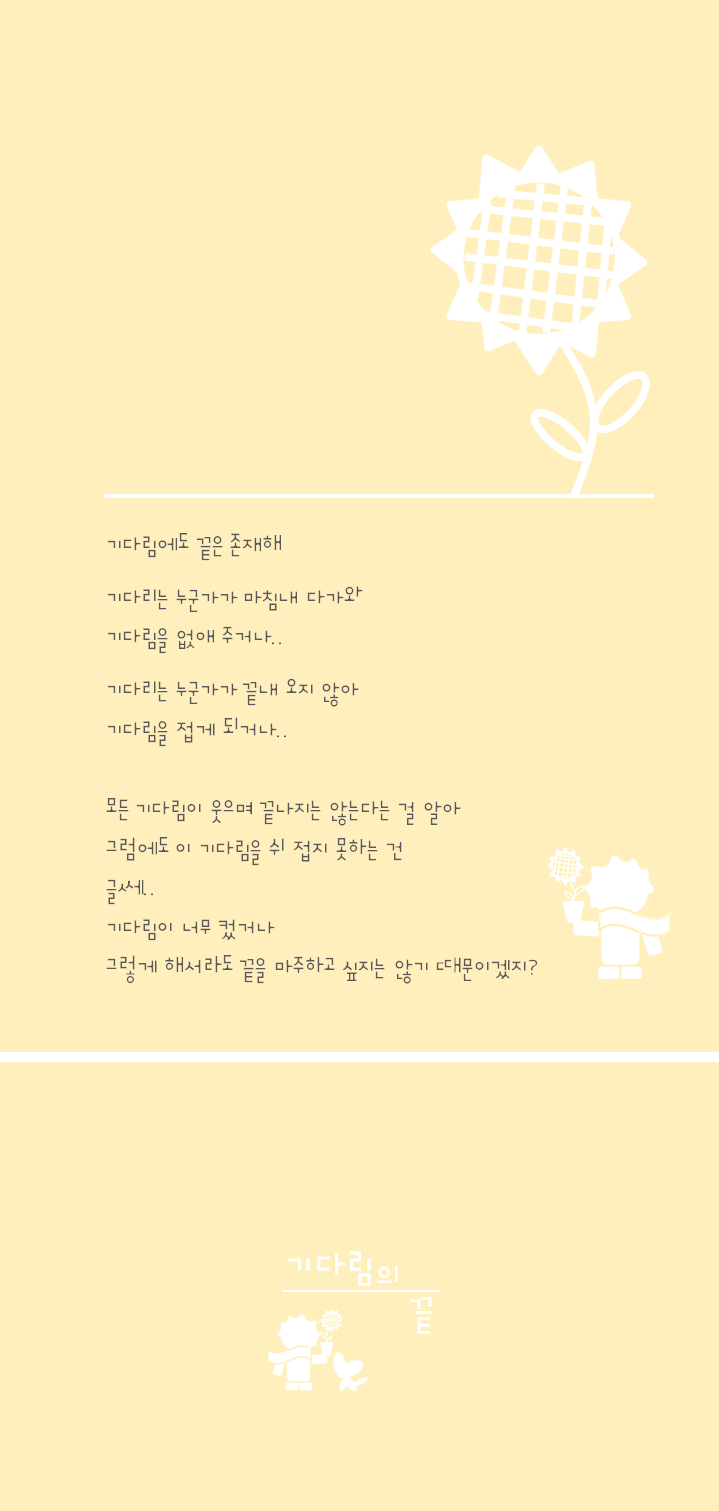 기다림에도 끝은 존재해
기다리는 누군가가 마침내 다가와
기다림을 없애 주거나..
기다리는 누군가가 끝내 오지 않아
기다림을 접게 되거나..
모든 기다림이 웃으며 끝나지는 않는다는 걸 알아
그럼에도 이 기다림을 쉬 접지 못하는 건
글쎄..
기다림이 너무 컸거나
그렇게 해서라도 끝을 마주하고 싶지는 않기 때문이겠지?
기다림의
끝